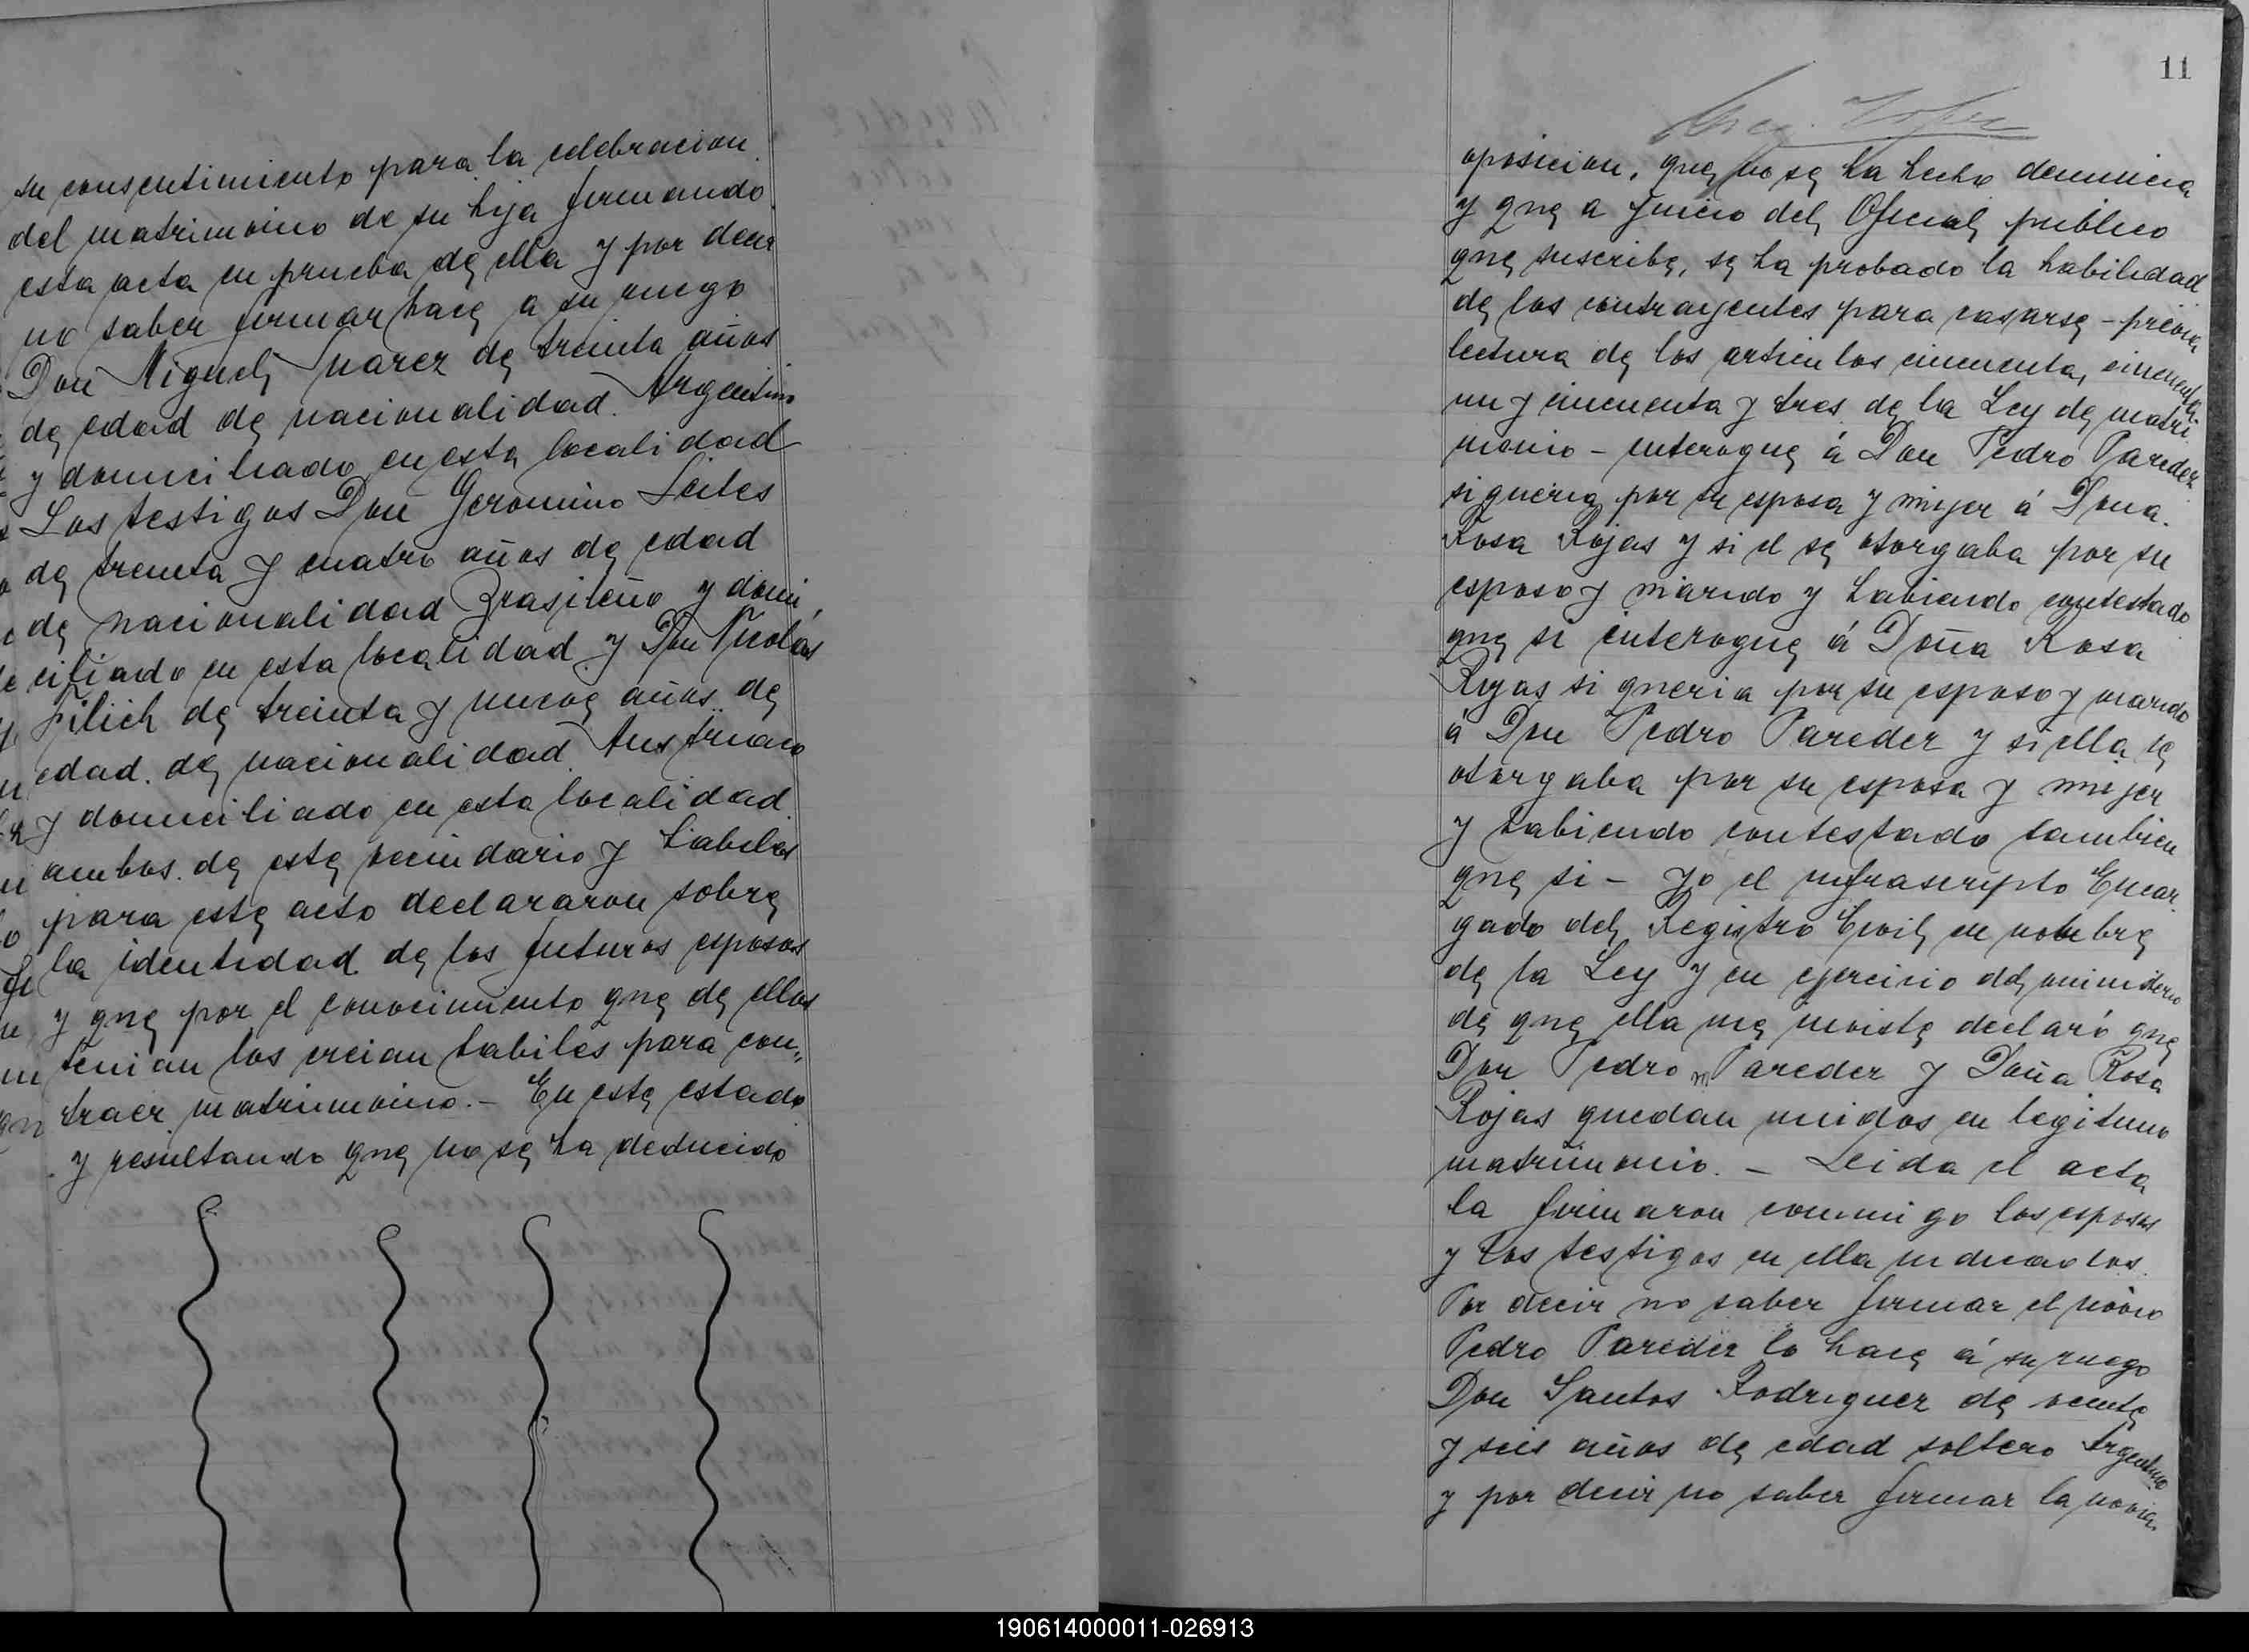 su consentimiento para la celebracion
del matrimonio de su hija firmando
esta acta en prueba de ella y por decir
no saber firmar hace a su ruego
Don Miguel Juarez de treinta años
de edad de nacionalidad Argentino
y domiciliado en esta localidad
Los testigos Don Geronimo Leites
de treinta y cuatro años de edad
de nacionalidad Brasileño y domi
ciliado en esta localidad y Don Nicolás
Filich de treinta y nueve años de
edad de nacionalidad Austriaco
y domiciliado en esta localidad
ambos de este vecindario y habiles
para este acto declararon sobre
la identidad de los futuros esposos
y que por el conocimiento que de ellos
tenian los creian habiles para con„
traer matrimonio.- En este estado
y resultando que no se ha deducido
11
oposicion, que no se ha hecho denuncia
y que a juicio del Oficial publico
que suscribe, se ha probado la habilidad
de los contrayentes para casarse - previa
lectura de los articulos cincuenta, cincuenta
un y cincuenta y tres de la Ley de matri
monio - interogue á Don Pedro Pareder
si queria por su esposa y mujer á Dona
Rosa Rojas y si el se otorgaba por su
esposo y marido y habiendo contestado
que si interogue á Doña Rosa
Rojas si queria por su esposo y marido
á Don Pedro Pareder y si ella se
otorgaba por su esposa y mujer
y habiendo contestado tambien
que si - yo el infrascripto Encar
gado del Registro Civil en nombre
de la Ley y en ejercicio del ministerio
de que ella me inviste declaró que
Don Pedro Pareder y Doña Rosa
Rojas quedan unidos en legitimo
matrimonio. - Leida el acta
la firmaron conmigo los esposos
y los testigos en ella indicados.
Por decir no saber firmar el novio
Pedro Pareder lo hace á su ruego
Don Santos Rodriguez de veinte
y seis años de edad soltero Argentino
y por decir no saber firmar la novia
190614000011-026913